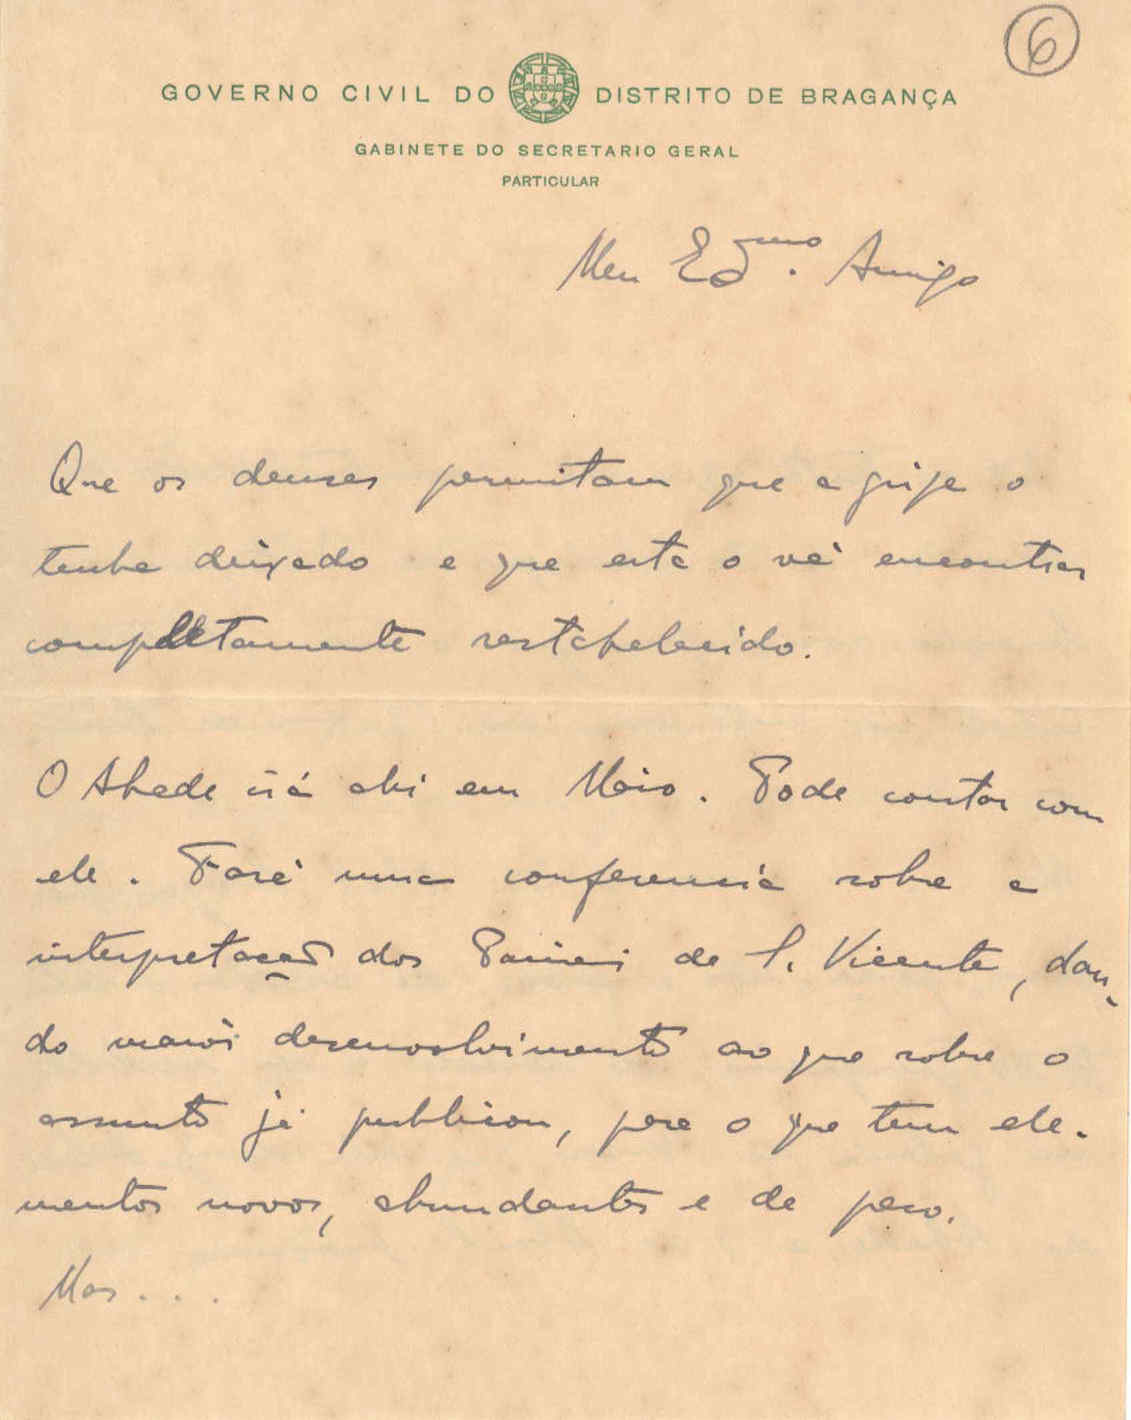 6
GOVERNO CIVIL DO DISTRITO DE BRAGANÇA
GABINETE DO SECRETARIO GERAL
PARTICULAR
Meu Ed.mo Amigo
Que os deuses permitam que a gripe o
tenha deixado e que esta o vá encontrar
completamente restabelecido.
O Abade irá ahi em Maio. Pode contar com
ele. Fará uma conferencia sobre a
interpretação dos Paineis de S. Vicente, dan-
do maiór desenvolvimento ao que sobre o
assunto já publicou, para o que tem ele-
mentos novos, abundantes e de peso.
Mas...